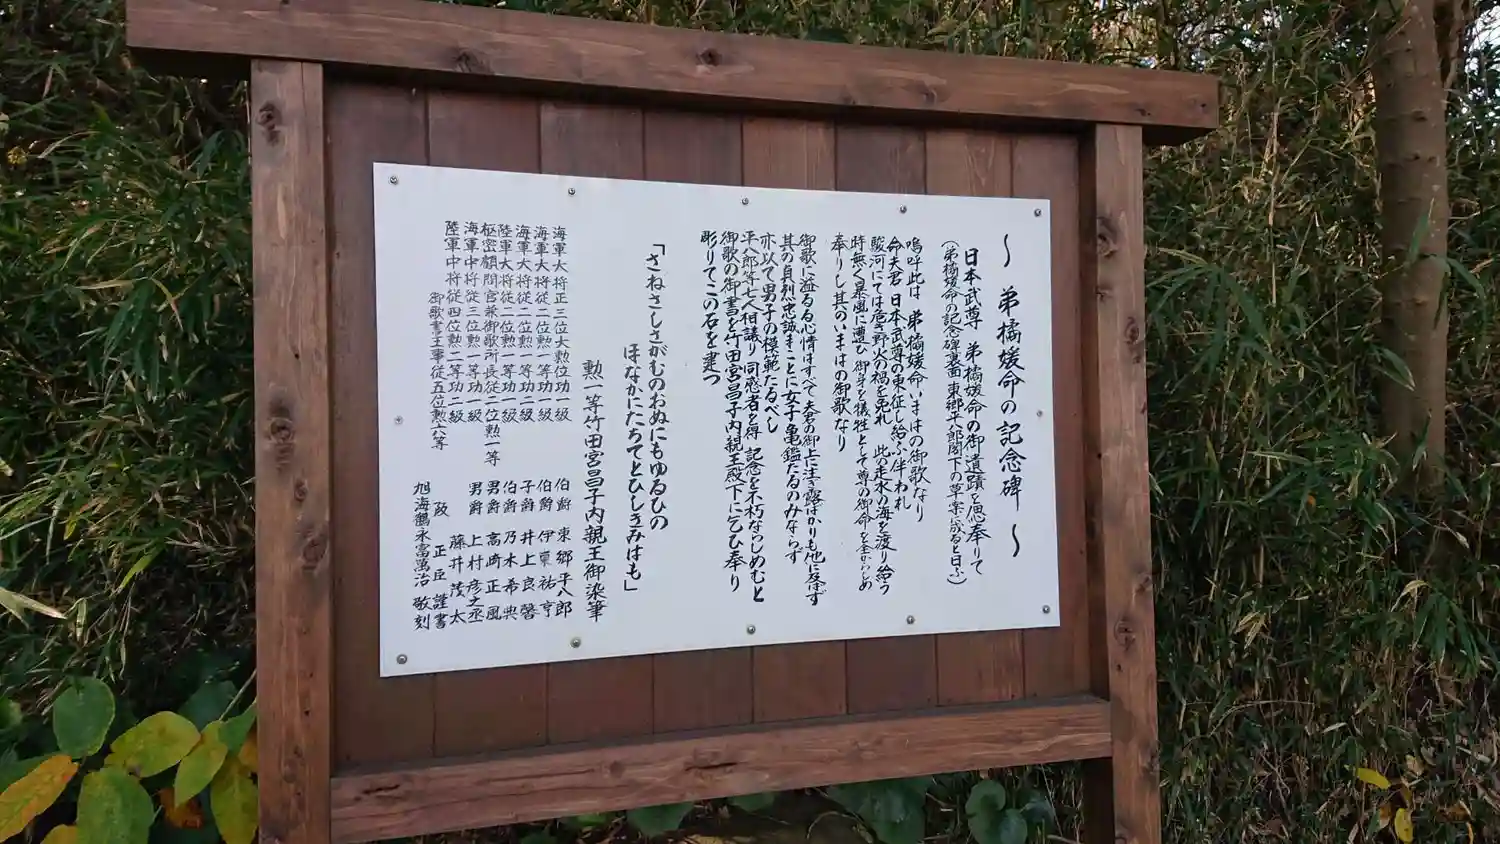 ～ 弟橘媛命の記念碑 ～
日本武尊 弟橘媛命の御遺蹟を思奉りて
(弟橘媛命の記念碑裏面 東郷平八郎閣下の草案に成ると曰ふ)
嗚呼此は 弟橘媛命いまはの御歌なり
命夫君 日本武尊の東征し給ふ伴われ
駿河にては危き野火の禍を免れ 此の走水の海を渡り給う
時無く暴風に遭ひ 御身を犠牲として尊の御命を全からしめ
奉りし其のいまはの御歌なり
御歌に溢るる心情はすべて夫君の御上に注ぎ露ばかりも他に及ばず
其の貞烈忠誠まことに女子の亀鑑たるのみならず
亦以て男子の模範たるべし
平八郎等七人相議り 同感者を得 記念を不朽ならしめむと
御歌の御書を竹田宮昌子内親王殿下に乞ひ奉り
彫りてこの石を建つ
「さねさしさがむのおぬにもゆるひの
ほなかにたちてとひしきみはも」
勲一等竹田宮昌子内親王御染筆
海軍大将正三位大勲位功一級 伯爵 東郷平八郎
海軍大将従二位勲一等功二級 伯爵 伊東祐亨
海軍大将従二位勲一等功二級 子爵 井上良馨
陸軍大将従二位勲一等功一級 伯爵 乃木希典
枢密顧問官兼御歌所長従二位勲一等 男爵 高崎正風
海軍中将従三位勲一等功一級 男爵 上村彦之丞
陸軍中将従四位勲二等功二級 藤井茂太
御歌書王事従五位勲六等 阪正臣 謹書
旭海鶴永富萬治 敬刻